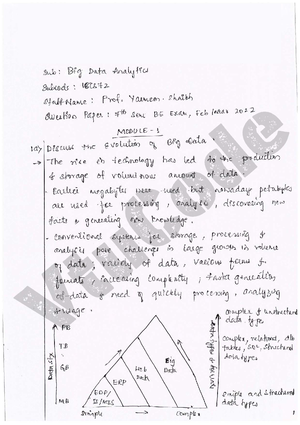 Sub: Big Data Analytics
Subcode: 18CS72
Staff Name: Prof. Yasmeen Shaikh
Question Paper: 7th Sem BE Exam, Feb/Mar 2022
MODULE - 1
Discuss the Evolution of Big Data.
→ The rise in technology has led to the production
& storage of voluminous amount of data.
Earlier megabytes were used but nowadays petabytes
are used for processing, analysis, discovering new
facts & generating new knowledge.
Conventional systems for storage, processing &
analysis pose challenges in large growth in volume
of data, variety of data, various forms &
formats, increasing complexity, faster generation
of data & need of quickly processing, analyzing
& usage.
complex & unstructured
data types
complex, relational,
SQL, structured
data types
Simple and structured
data types
Data Size
PB
TB
GB
MB
ERP
Big
Data
Simple
Complex
VTUPulse